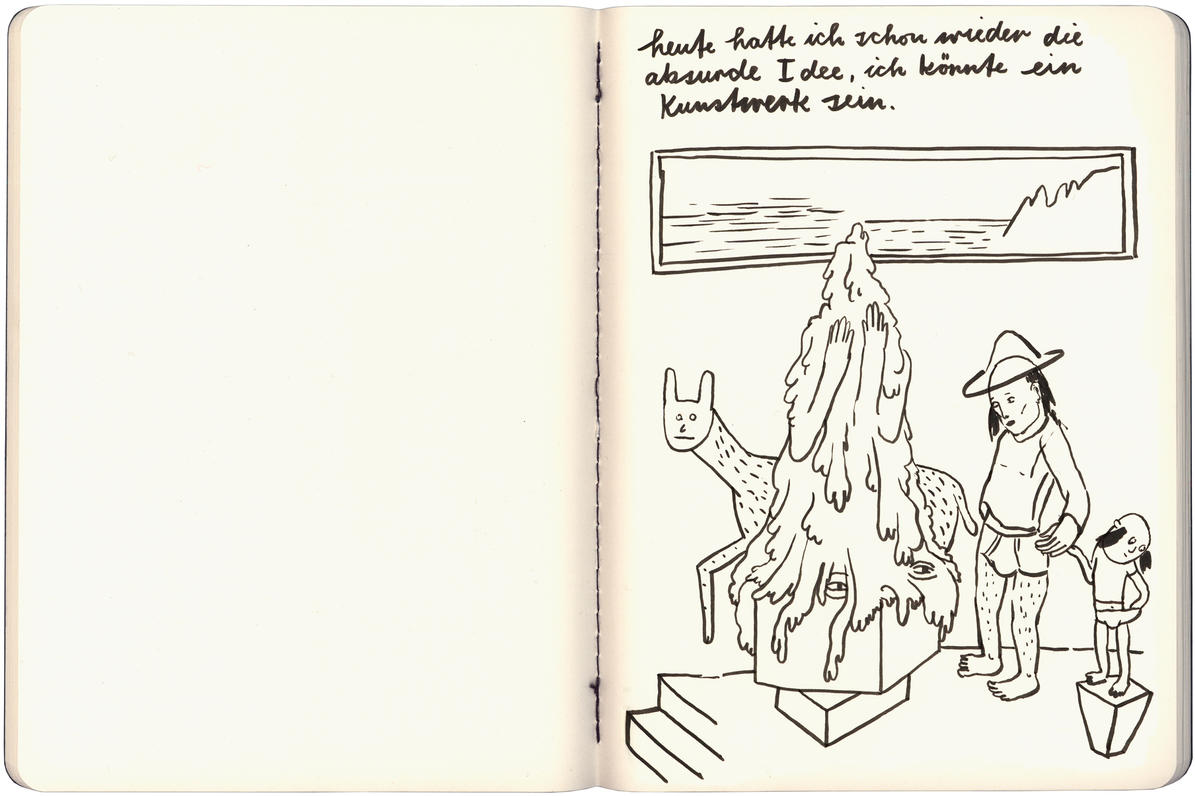 heute hatte ich schon wieder die
absurde Idee, ich könnte ein
Kunstwerk sein.